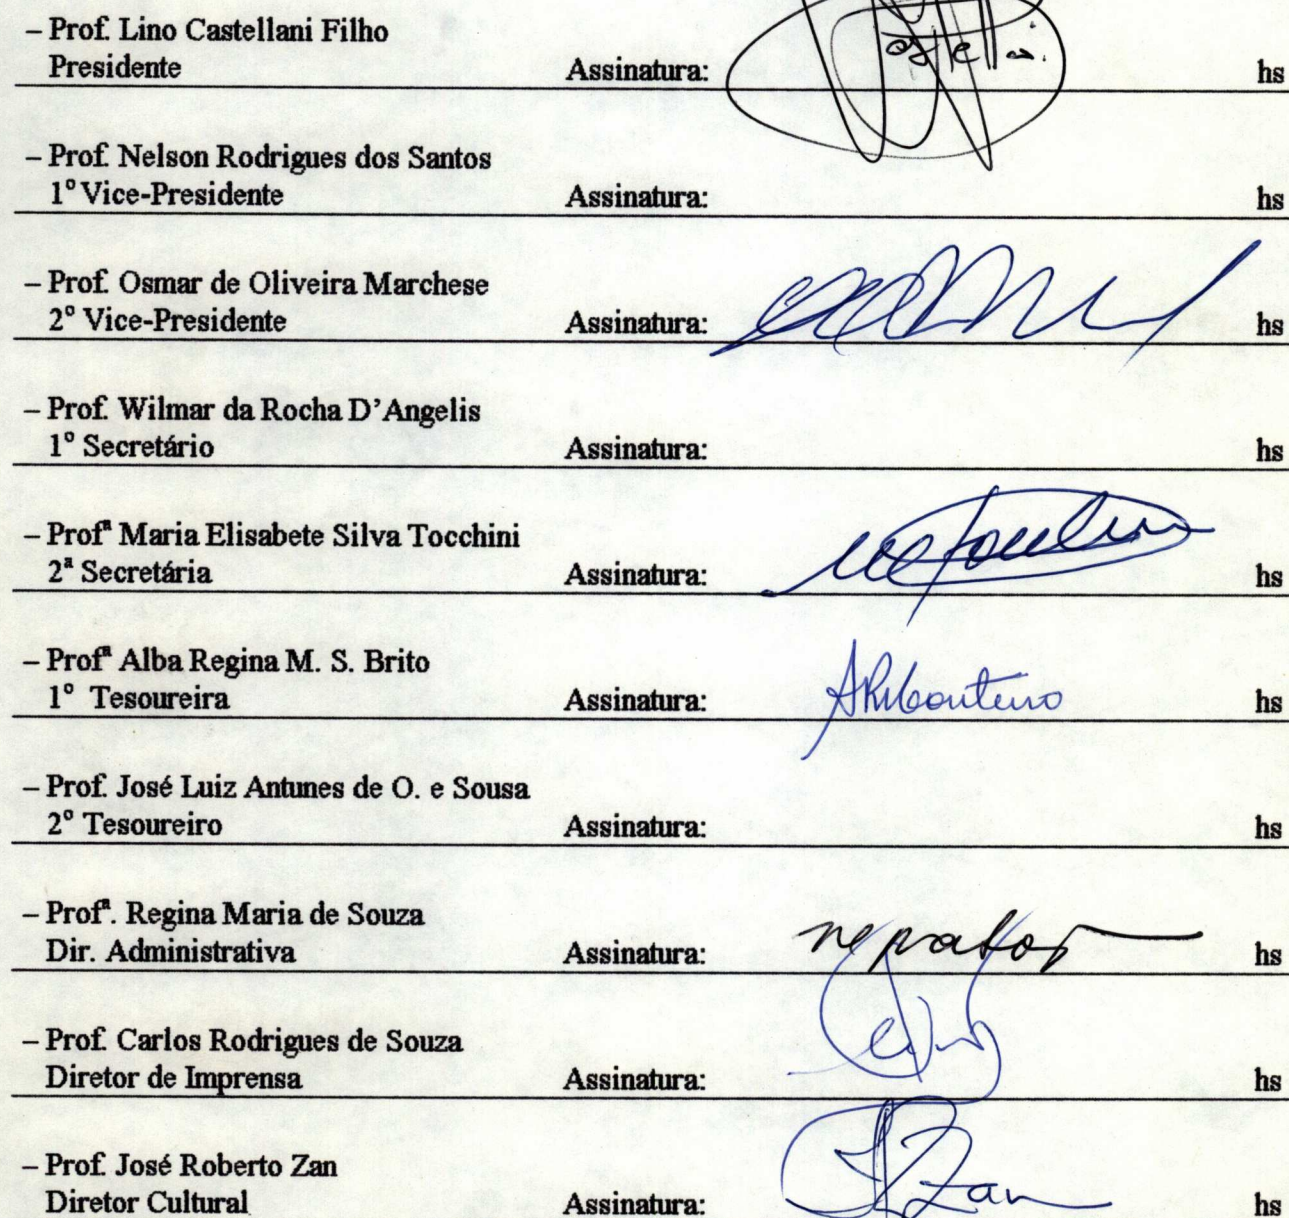 – Prof. Lino Castellani Filho
Presidente Assinatura: hs
– Prof. Nelson Rodrigues dos Santos
1º Vice-Presidente Assinatura: hs
– Prof. Osmar de Oliveira Marchese
2º Vice-Presidente Assinatura: hs
– Prof. Wilmar da Rocha D'Angelis
1º Secretário Assinatura: hs
– Profª Maria Elisabete Silva Tocchini
2ª Secretária Assinatura: hs
– Profª Alba Regina M. S. Brito
1º Tesoureira Assinatura: ARMonteiro hs
– Prof. José Luiz Antunes de O. e Sousa
2º Tesoureiro Assinatura: hs
– Profª. Regina Maria de Souza
Dir. Administrativa Assinatura: hs
– Prof. Carlos Rodrigues de Souza
Diretor de Imprensa Assinatura: hs
– Prof. José Roberto Zan
Diretor Cultural Assinatura: Zan hs